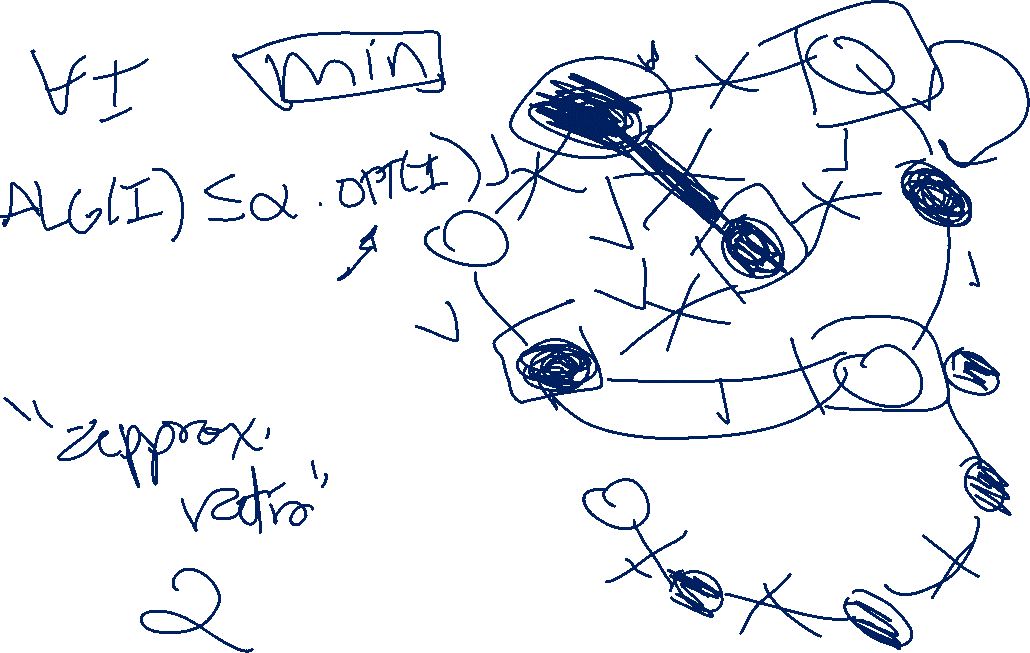 ∀I min
ALG(I) ≤ α · OPT(I)
"approx.
ratio"
2